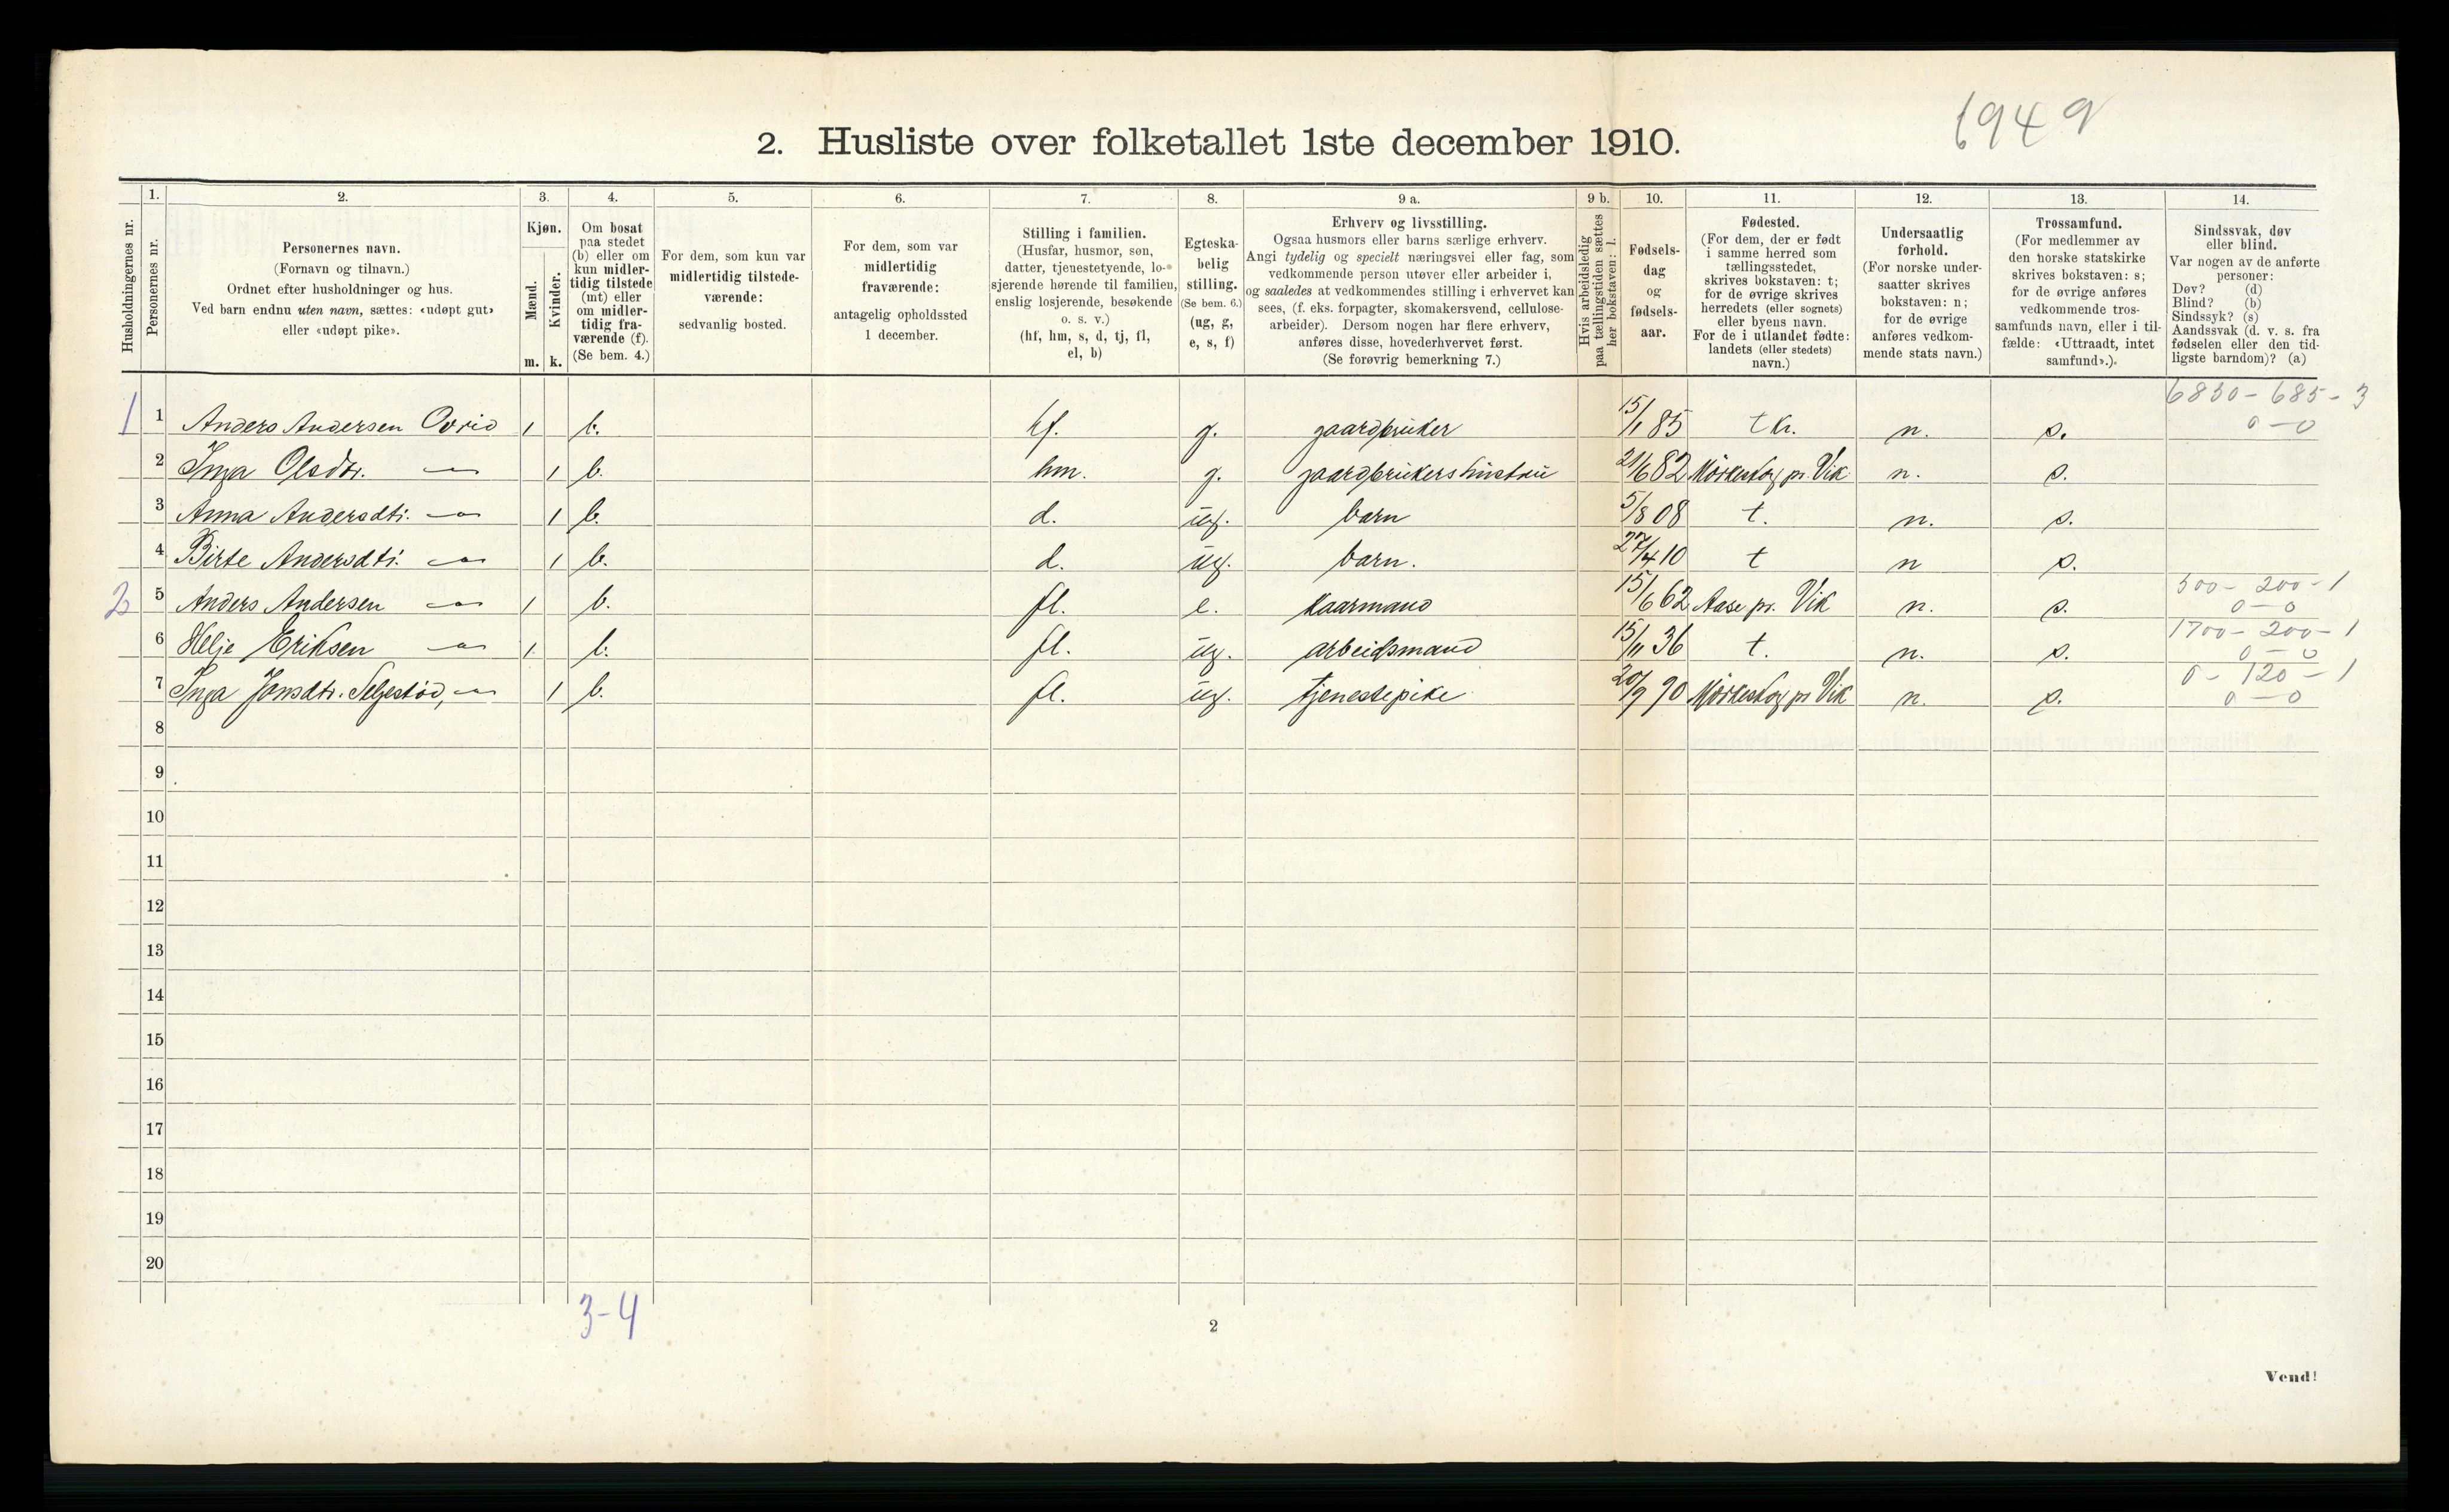 6949
2. Husliste over folketallet 1ste december 1910.
Husholdningernes nr.
1. Personernes nr.
2. Personernes navn.
(Fornavn og tilnavn.)
Ordnet efter husholdninger og hus.
Ved barn endnu uten navn, sættes: «udøpt gut»
eller «udøpt pike».
3. Kjøn.
Mænd. Kvinder.
m. k.
4. Om bosat
paa stedet
(b) eller om
kun midler-
tidig tilstede
(mt) eller
om midler-
tidig fra-
værende (f).
(Se bem. 4.)
5. For dem, som kun var
midlertidig tilstede-
værende:
sedvanlig bosted.
6. For dem, som var
midlertidig
fraværende:
antagelig opholdssted
1 december.
7. Stilling i familien.
(Husfar, husmor, søn,
datter, tjenestetyende, lo-
sjerende hørende til familien,
enslig losjerende, besøkende
o. s. v.)
(hf, hm, s, d, tj, fl,
el, b)
8. Egteska-
belig
stilling.
(Se bem. 6.)
(ug, g,
e, s, f)
9 a. Erhverv og livsstilling.
Ogsaa husmors eller barns særlige erhverv.
Angi tydelig og specielt næringsvei eller fag, som
vedkommende person utøver eller arbeider i,
og saaledes at vedkommendes stilling i erhvervet kan
sees, (f. eks. forpagter, skomakersvend, cellulose-
arbeider). Dersom nogen har flere erhverv,
anføres disse, hovederhvervet først.
(Se forøvrig bemerkning 7.)
9 b. Hvis arbeidsledig
paa tællingstiden sættes
her bokstaven: l.
10. Fødsels-
dag
og
fødsels-
aar.
11. Fødested.
(For dem, der er født
i samme herred som
tællingsstedet,
skrives bokstaven: t;
for de øvrige skrives
herredets (eller sognets)
eller byens navn.
For de i utlandet fødte:
landets (eller stedets)
navn.)
12. Undersaatlig
forhold.
(For norske under-
saatter skrives
bokstaven: n;
for de øvrige
anføres vedkom-
mende stats navn.)
13. Trossamfund.
(For medlemmer av
den norske statskirke
skrives bokstaven: s;
for de øvrige anføres
vedkommende tros-
samfunds navn, eller i til-
fælde: «Uttraadt, intet
samfund».)
14. Sindssvak, døv
eller blind.
Var nogen av de anførte
personer:
Døv? (d)
Blind? (b)
Sindssyk? (s)
Aandssvak (d. v. s. fra
fødselen eller den tid-
ligste barndom)? (a)
1 1 Anders Andersen Ovrid 1 b. hf. g. gaardbruker 15/1 85 t kr. n. s. 6830 - 685 - 3
0 - 0
2 Inga Olsdtr. — 1 b. hm. g. gaardbrukers hustru 21/6 82 Mörkestog pr. Vik n. s.
3 Anna Andersdtr. — 1 b. d. ug. barn 5/8 08 t. n. s.
4 Birte Andersdtr. — 1 b. d. ug. barn. 27/4 10 t n s.
2 5 Anders Andersen — 1 b. fl. e. kaarmand 15/6 62 Aase pr. Vik n. s. 500 - 200 - 1
0 - 0
6 Helje Eriksen — 1 b. fl. ug. arbeidsmand 15/11 36 t. n. s. 1700 - 200 - 1
0 - 0
7 Inga Jonsdtr. Seljestöd, — 1 b. fl. ug. tjenestepike 20/9 90 Mörkestog pr Vik n. s. 0 - 120 - 1
0 - 0
8
9
10
11
12
13
14
15
16
17
18
19
20
3-4
2
Vend!